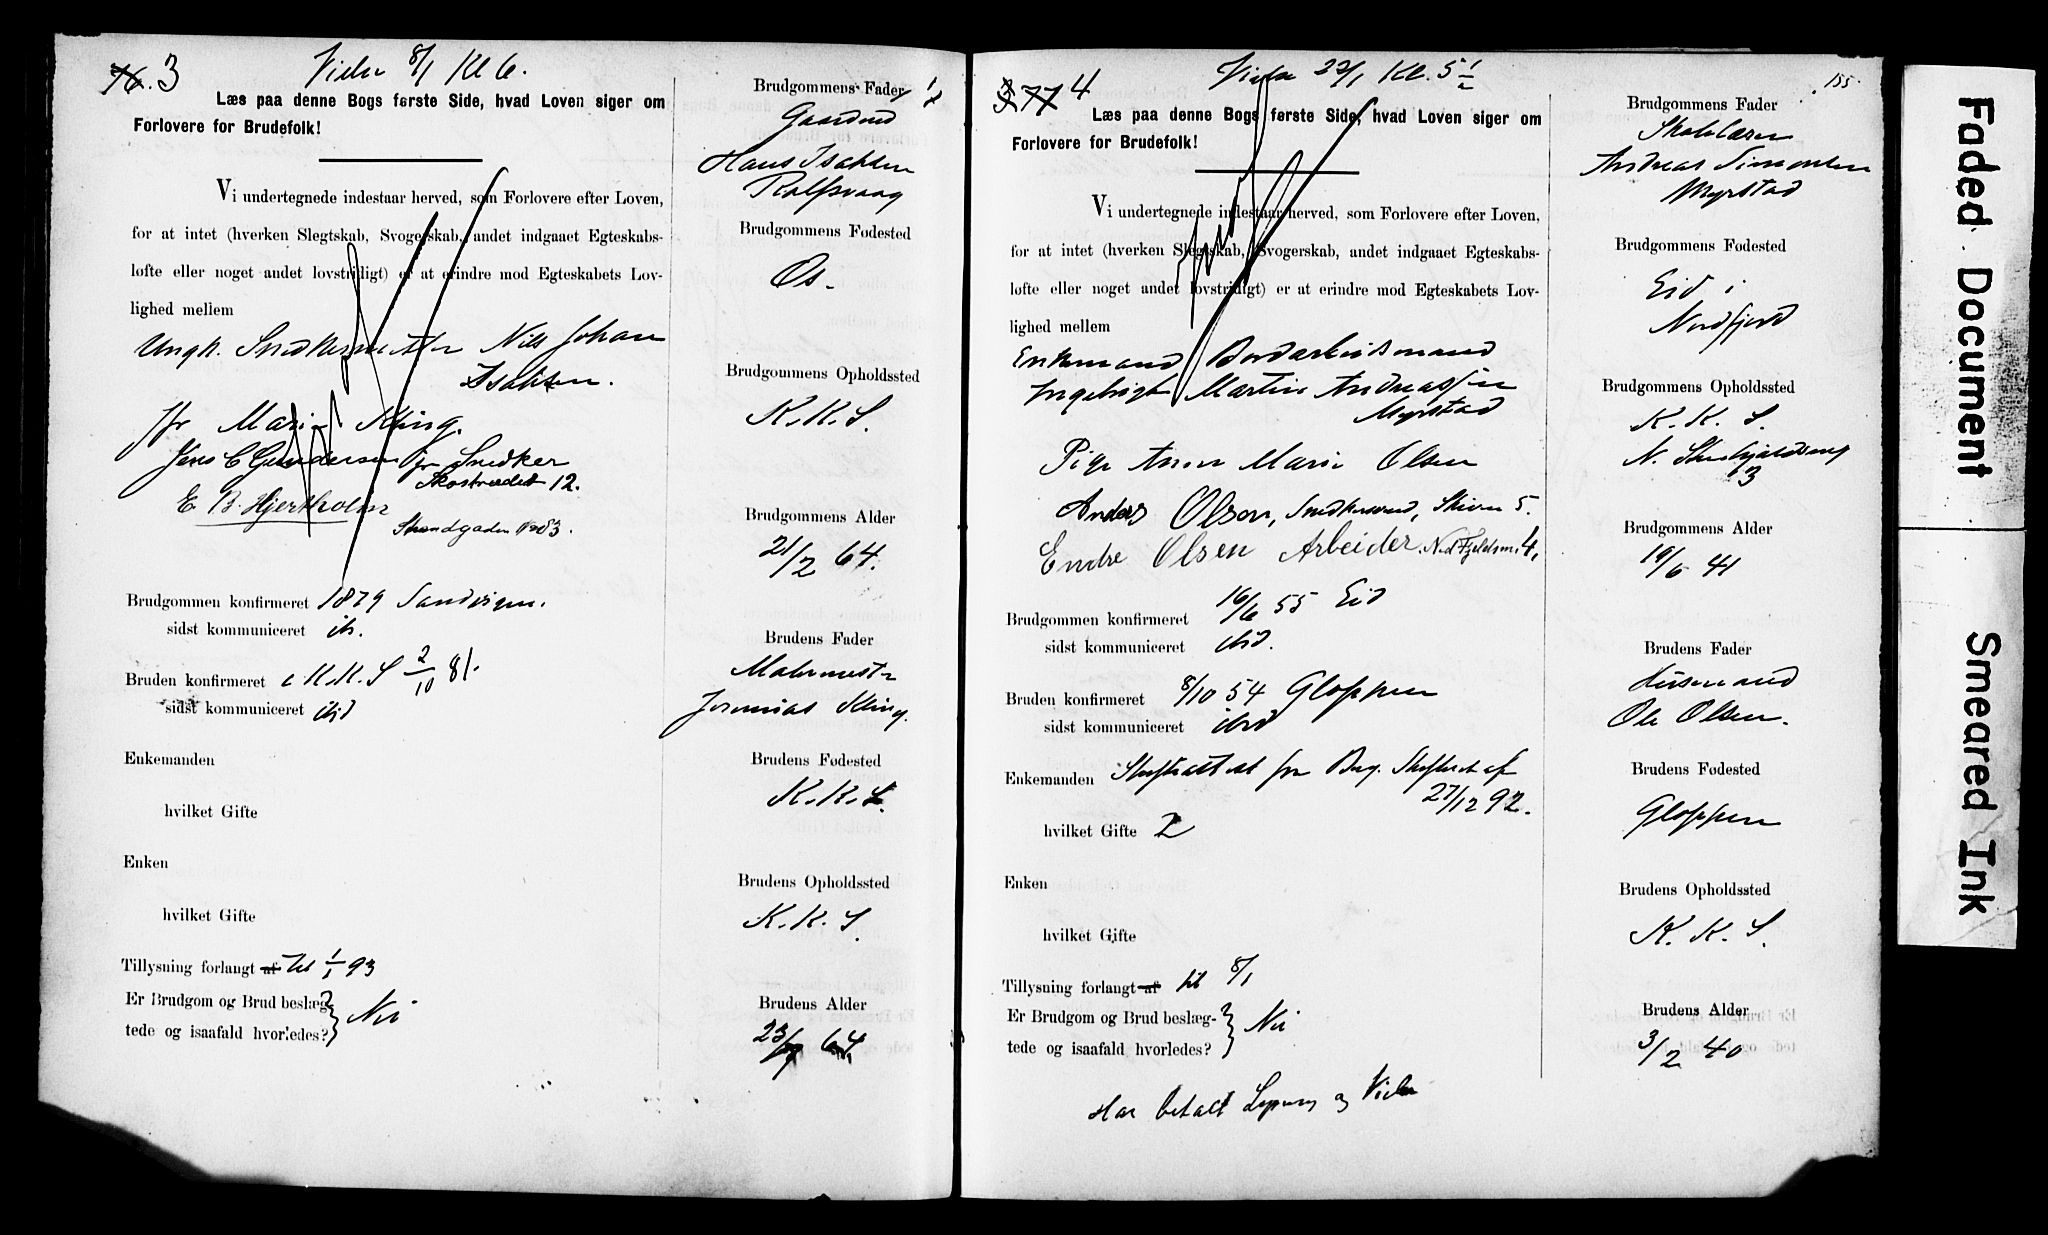 76. 3 Vielse 8/1 Kl 6.
Læs paa denne Bogs første Side, hvad Loven siger om
Forlovere for Brudefolk!
Vi undertegnede indestaar herved, som Forlovere efter Loven,
for at intet (hverken Slegtskab, Svogerskab, andet indgaaet Egteskabs-
løfte eller noget andet lovstridigt) er at erindre mod Egteskabets Lov-
lighed mellem
Ungk. Snedkermester Nils Johan
Isaksen.
Jfr Marie Kling.
Jens C Gundersen Snedker
Skostrædet 12.
E. B. Hjertholm
Strandgaden No 83.
Brudgommen konfirmeret 1879 Sandvigen.
sidst kommuniceret ib.
Bruden konfirmeret i K.K.S 2/10 81.
sidst kommuniceret ibid
Enkemanden
hvilket Gifte
Enken
hvilket Gifte
Tillysning forlangt af til 1/1 93
Er Brudgom og Brud beslæg-
tede og isaafald hvorledes? Nei
Brudgommens Fader
Gaardmd
Hans Isaksen
Rolfsvaag
Brudgommens Fødested
Os.
Brudgommens Opholdssted
K.K.S.
Brudgommens Alder
21/2 64.
Brudens Fader
Malermester
Jeremias Kling.
Brudens Fødested
K.K.S.
Brudens Opholdssted
K.K.S.
Brudens Alder
23/9 64
77 4 Vielse 22/1 Kl. 5 1/2
155
Læs paa denne Bogs første Side, hvad Loven siger om
Forlovere for Brudefolk!
Vi undertegnede indestaar herved, som Forlovere efter Loven,
for at intet (hverken Slegtskab, Svogerskab, andet indgaaet Egteskabs-
løfte eller noget andet lovstridigt) er at erindre mod Egteskabets Lov-
lighed mellem
Enkemand Bordarbeidsmand
Ingebrigt Martin Andreassen
Myrstad
Pige Anne Marie Olsen
Anders Olson, Snedkersvend, Skiven 5.
Endre Olsen Arbeider. Ned Fjeldsm. 4,
Brudgommen konfirmeret 16/6 55 Eid
sidst kommuniceret ibid.
Bruden konfirmeret 8/10 54 Gloppen
sidst kommuniceret ibid
Enkemanden Skifteattest fra Berg. Skifteret af
27/12 92.
hvilket Gifte 2
Enken
hvilket Gifte
Tillysning forlangt af til 8/1
Er Brudgom og Brud beslæg-
tede og isaafald hvorledes? Nei
Har betalt Lysning og Vielse
Brudgommens Fader
Skolelærer
Andreas Simonsen
Myrstad
Brudgommens Fødested
Eid i
Nordfjord
Brudgommens Opholdssted
K. K. S.
3
Brudgommens Alder
19/6 41
Brudens Fader
Husmand
Ole Olsen.
Brudens Fødested
Gloppen
Brudens Opholdssted
K. K. S.
Brudens Alder
3/2 40
Faded Document
Smeared Ink